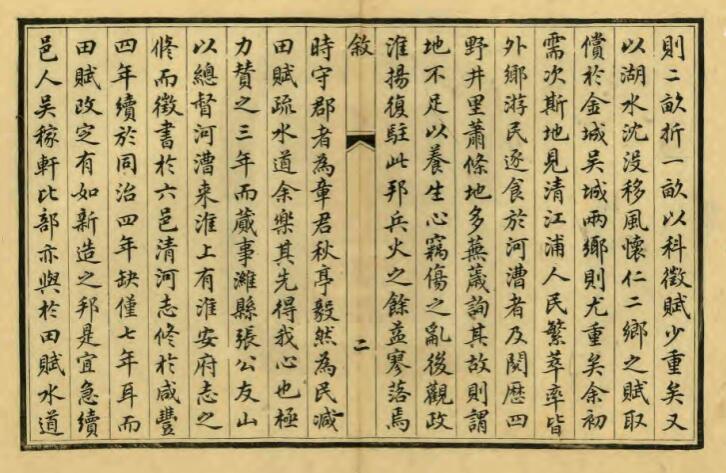 則二畝折一畝以科徵賦少重矣又
以湖水沈没移風懷仁二鄉之賦取
償於金城吳城兩鄉則尤重矣余初
需次斯地見清江浦人民繁萃率皆
外鄉游民逐食於河漕者及閱歷四
野井里蕭條地多蕪薉詢其故則謂
地不足以養生心竊傷之亂後觀政
淮揚復駐此邦兵火之餘益寥落焉
敘
二
時守郡者為章君秋亭毅然為民減
田賦疏水道余樂其先得我心也極
力贊之三年而蕆事濰縣張公友山
以總督河漕來淮上有淮安府志之
修而徵書於六邑清河志修於咸豐
四年續於同治四年缺僅七年耳而
田賦改定有如新造之邦是宜急續
邑人吳稼軒比部亦與於田賦水道